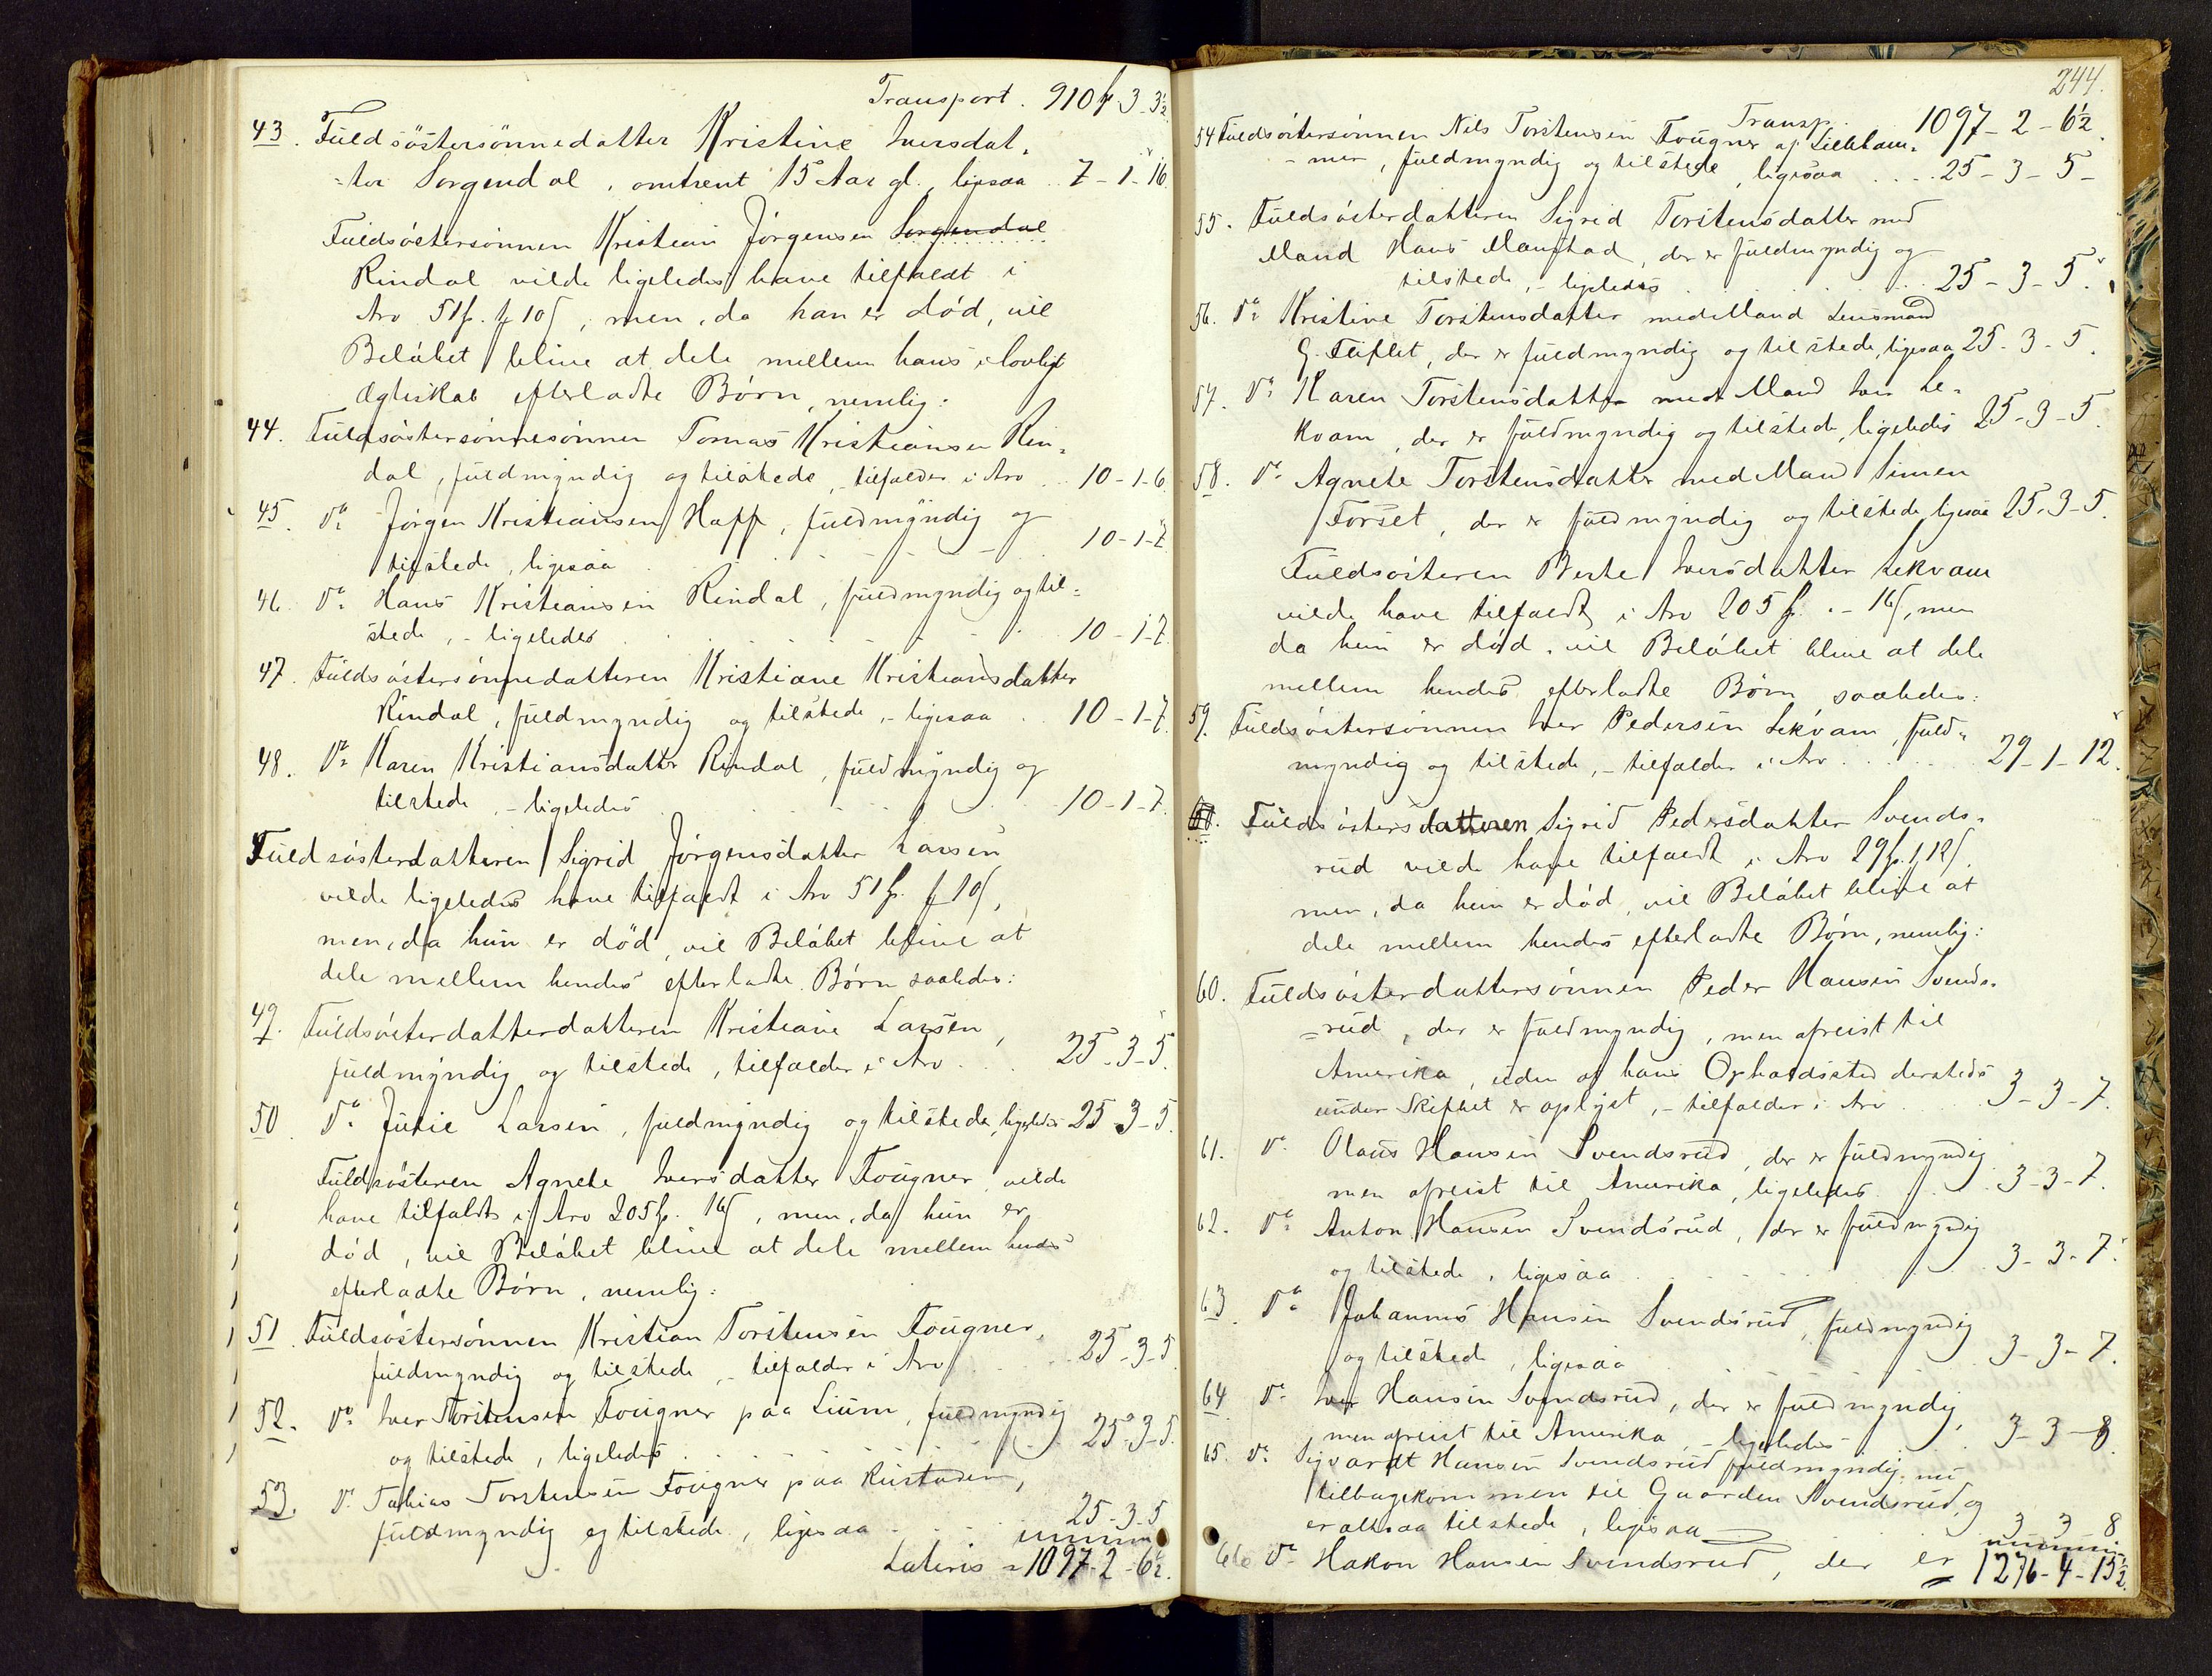 Transport. 910 f 3-3½
43. Fuldsöstersönnedatter Kristine Iversdat-
ter Sorgendal, omtrent 15 Aar gl., ligesaa .. 7-1-16.
Fuldsöstersönnen Kristian Jörgensen Sorgendal
Rindal vilde ligeledes have tilfaldt i
Arv 51 f. 1 f 10 ſ, men, da han er död, vil
Belöbet blive at dele mellem hans i lovligt
Ægteskab efterladte Börn, nemlig:
44. Fuldsöstersönnesönnen Tomas Kristiansen Rin-
dal, fuldmyndig og tilstede, tilfalder i Arv ... 10-1-6
45. Do Jörgen Kristiansen Happ, fuldmyndig og
tilstede, ligesaa . . . 10-1-7
46. Do Hans Kristiansen Rindal, fuldmyndig og til-
stede, - ligeledes . . . 10-1-7
47. Fuldsöstersönnedatteren Kristiane Kristiansdatter
Rindal, fuldmyndig og tilstede, - ligesaa . . 10-1-7.
48. Do Karen Kristiansdatter Rindal, fuldmyndig og
tilstede - ligeledes . . . 10-1-7.
Fuldsösterdatteren Sigrid Jörgensdatter Larsen
vilde ligeledes have tilfaldt i Arv 51 f. 1 f 10 ſ,
men, da hun er död, vil Belöbet blive at
dele mellem hendes efterladte Börn saaledes:
49. Fuldsösterdatterdatteren Kristiane Larsen,
fuldmyndig og tilstede, tilfalder i Arv . . . 25-3-5.
50. Do Julie Larsen, fuldmyndig og tilstede, ligeledes 25-3-5.
Fuldsösteren Agnete Iversdatter Fougner vilde
have tilfaldt i Arv 205 f. 16 ſ, men, da hun er
död, vil Belöbet blive at dele mellem hendes
efterladte Börn, nemlig:
51. Fuldsöstersönnen Kristian Torstensen Fougner,
fuldmyndig og tilstede, - tilfalder i Arv . . . 25-3-5
52. Do Iver Torstensen Fougner paa Lium, fuldmyndig
og tilstede, ligeledes . . . 25-3-5.
53. Do Tobias Torstensen Fougner paa Rustaden,
fuldmyndig og tilstede, ligesaa . . . 25-3-5
Lateris = 1097-2-6½.
244.
Transp. 1097-2-6½.
54 Fuldsöstersönnen Nils Torstensen Fougner af Lilleham-
mer, fuldmyndig og tilstede, ligesaa .... 25-3-5-
55. Fuldsösterdatteren Sigrid Torstensdatter med
Mand Hans Maurstad, der er fuldmyndig og
tilstede, - ligeledes . . . 25-3-5.
56. Do Kristine Torstensdatter med Mand Lensmand
G. Fliflet, der er fuldmyndig og tilstede, ligesaa 25-3-5.
57. Do Karen Torstensdatter med Mand Iver Le-
kvam, der er fuldmyndig og tilstede, ligeledes 25-3-5.
58. Do Agnete Torstensdatter med Mand Simen
Forset, der er fuldmyndig og tilstede, ligesaa 25-3-5.
Fuldsösteren Berte Iversdatter Lekvam
vilde have tilfaldt i Arv 205 f. - 16 ſ, men
da hun er död, vil Belöbet blive at dele
mellem hendes efterladte Börn saaledes:
59. Fuldsöstersönnen Iver Pedersen Lekvam, fuld-
myndig og tilstede, - tilfalder i Arv . . . 29-1-12.
60. Fuldsösterdatteren Sigrid Pedersdatter Svends-
rud vilde have tilfaldt i Arv 29 f. 1 f 12 ſ,
men, da hun er död, vil Belöbet blive at
dele mellem hendes efterladte Börn, nemlig:
60. Fuldsösterdattersönnen Peder Hansen Svends-
rud, der er fuldmyndig, men afreist til
Amerika, uden at hans Opholdssted dersteds
under Skiftet er oplyst, - tilfalder i Arv . . . 3-3-7.
61. Do Olaus Hansen Svendsrud, der er fuldmyndig
men afreist til Amerika, ligeledes . . . 3-3-7.
62. Do Anton Hansen Svendsrud, der er fuldmyndig
og tilstede, ligesaa . . . 3-3-7.
63. Do Johannes Hansen Svendsrud, fuldmyndig
og tilstede, ligesaa . . . 3-3-7.
64 Do Iver Hansen Svendsrud, der er fuldmyndig,
men afreist til Amerika, - ligeledes . . . 3-3-8
65. Do Sigvardt Hansen Svendsrud fuldmyndig, nu
tilbagekommen til Gaarden Svendsrud, og
er altsaa tilstede, ligesaa 3 3 8
66 Do Hakon Hansen Svendsrud, der er 1276-4-15½.